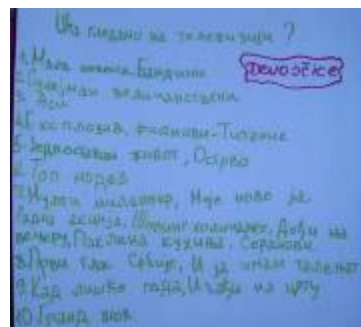 Шта гледамо на телевизији?
Devojčice
1. Мала невеста, Бандини
2. Сулејман величанствени
3.
4. Експлозив, филмови-Титаник
5. Једноставан живот, Острво
6. Топ модел
7. Мућни милионер, Није ново је
Радна акција, Шопинг холичарке, Дођи на
вечеру, Паклена кухиња, Серанови
8. Први глас Србије, И ја имам таленат
9. Кад лишће пада, Изађи на црту
10. Гранд шоу